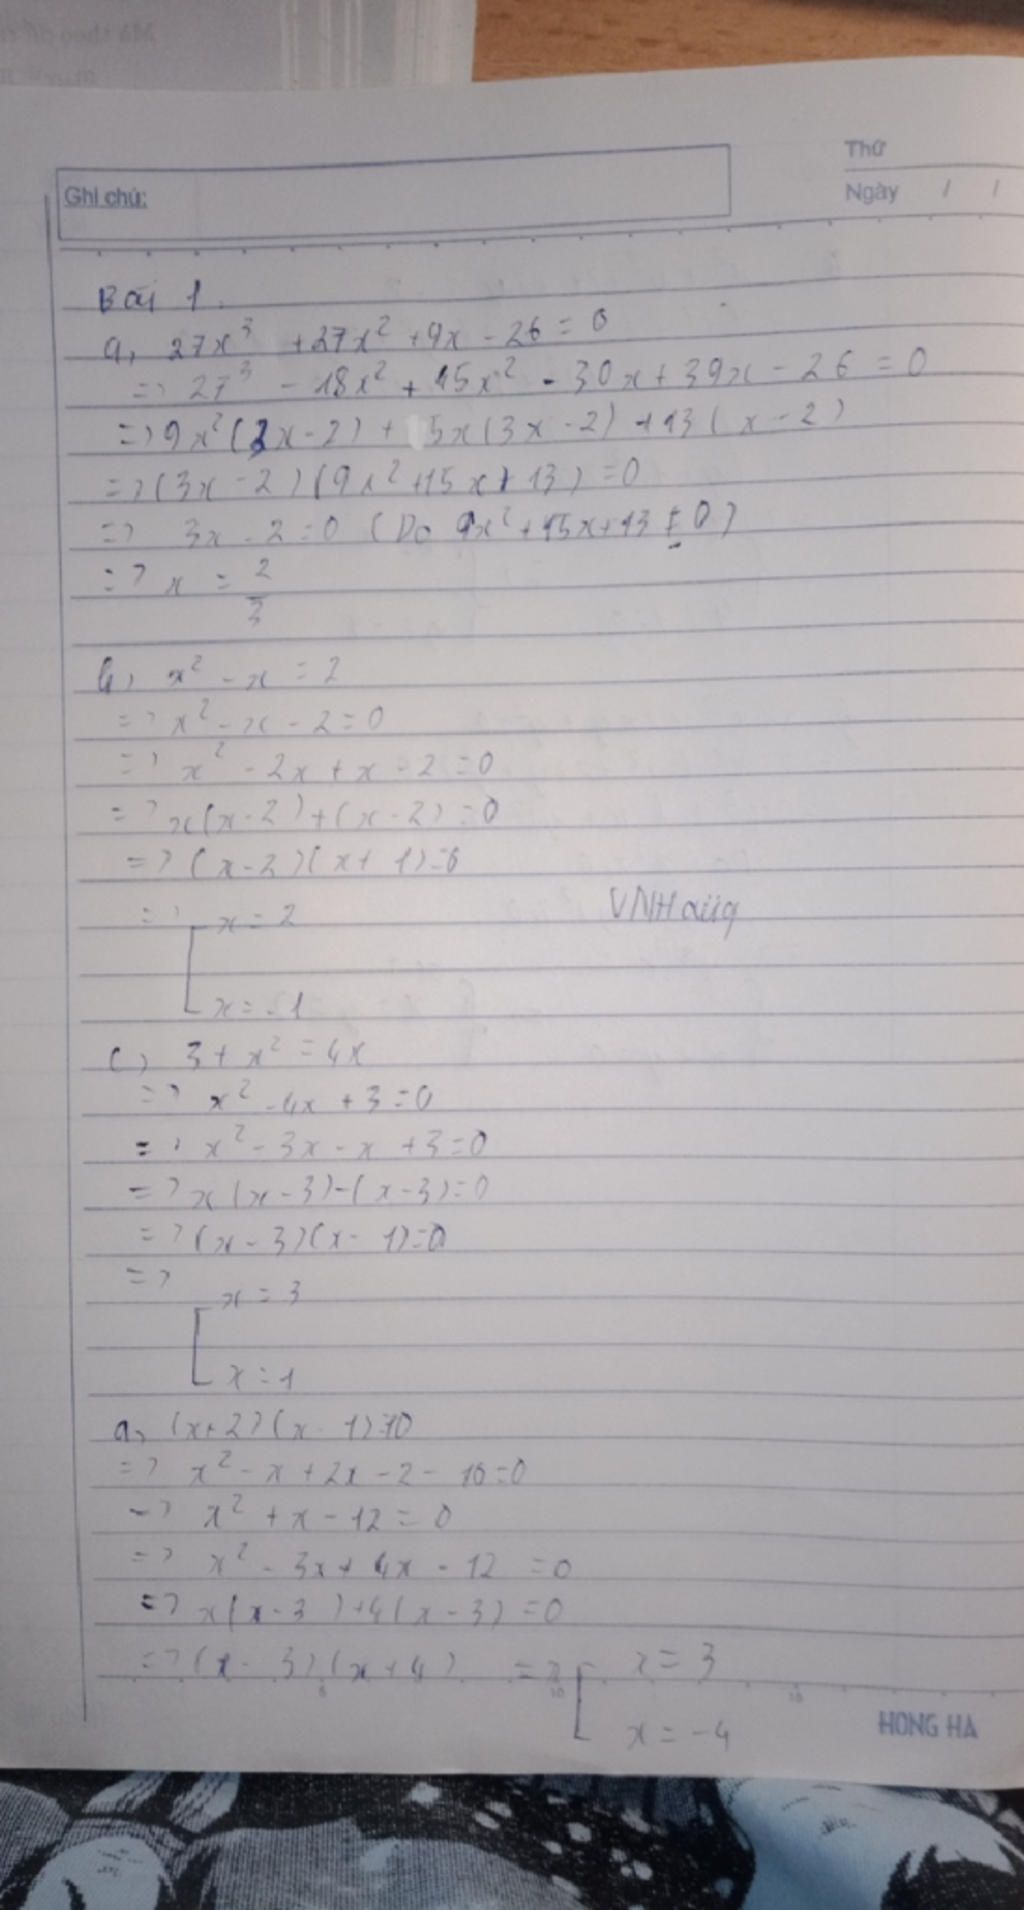 Thứ
Ghi chú:
Ngày / /
Bài 1.
a, 27x³ + 27x² + 9x - 26 = 0
=> 27³ - 18x² + 45x² - 30x + 39x - 26 = 0
=> 9x²(3x - 2) + 15x(3x - 2) + 13(x - 2)
=> (3x - 2)(9x² + 15x + 13) = 0
=> 3x - 2 = 0 (Do 9x² + 15x + 13 ≠ 0)
=> x = 2/3
b, x² - x = 2
=> x² - x - 2 = 0
=> x² - 2x + x - 2 = 0
=> x(x - 2) + (x - 2) = 0
=> (x - 2)(x + 1) = 0
=> [ x = 2
VNHaiiq
x = -1
c) 3 + x² = 4x
=> x² - 4x + 3 = 0
=> x² - 3x - x + 3 = 0
=> x(x - 3) - (x - 3) = 0
=> (x - 3)(x - 1) = 0
=> [ x = 3
x = 1
d, (x + 2)(x - 1) = 10
=> x² - x + 2x - 2 - 10 = 0
=> x² + x - 12 = 0
=> x² - 3x + 4x - 12 = 0
=> x(x - 3) + 4(x - 3) = 0
=> (x - 3)(x + 4) => [ x = 3
x = -4
5 10 15
HONG HA